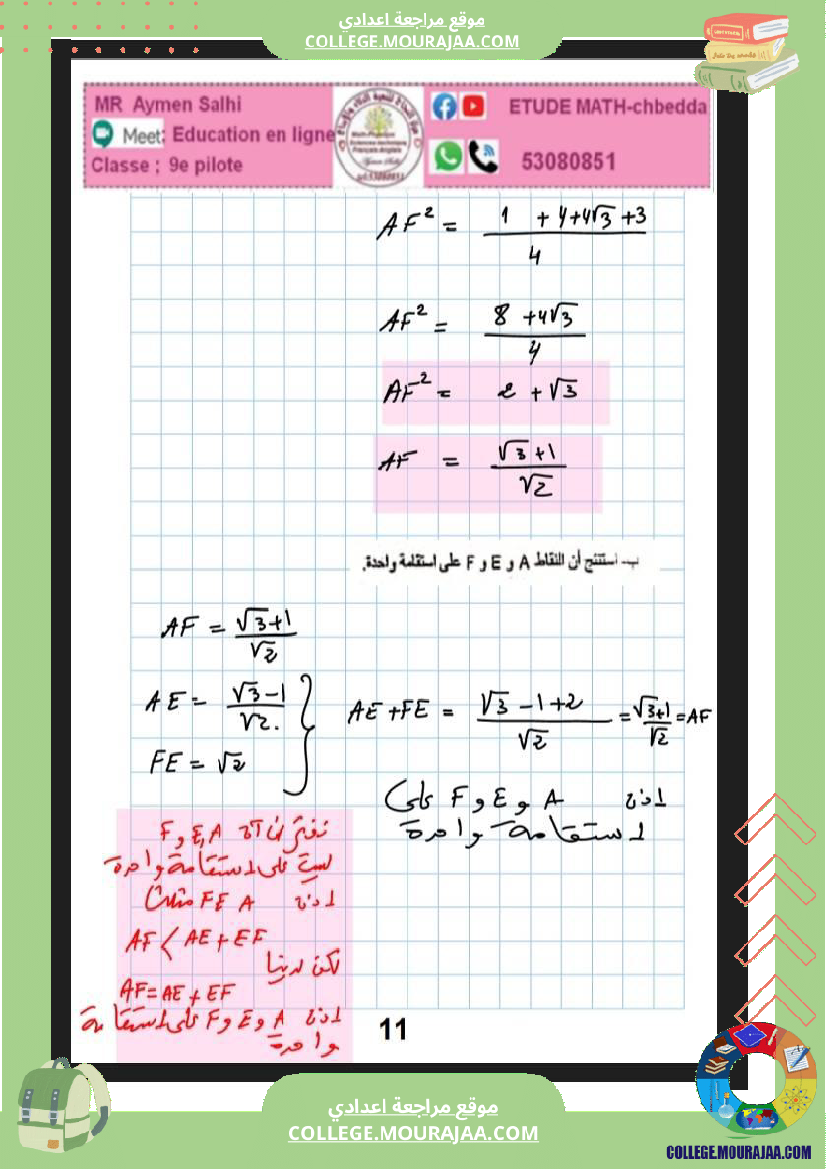 موقع مراجعة اعدادي
COLLEGE.MOURAJAA.COM
MR Aymen Salhi
Meet: Education en ligne
Classe ; 9e pilote
ETUDE MATH-chbedda
53080851
AF² = (1 + 4+4√3 +3)/4
AF² = (8 +4√3)/4
AF² = 2 + √3
AF = (√3 +1)/√2
ب- استنتج أن النقاط A و E و F على استقامة واحدة.
AF = (√3+1)/√2
AE = (√3 -1)/√2.
FE = √2
AE +FE = (√3 -1+2)/√2 = (√3+1)/√2 = AF
اذن A و E و F على
استقامة واحدة
نفترض ان A ,E و F
ليست على استقامة واحدة
اذن A FE مثلث
AF < AE + EF
لكن لدينا
AF = AE + EF
اذن A و E و F على استقامة
واحدة
11
موقع مراجعة اعدادي
COLLEGE.MOURAJAA.COM
COLLEGE.MOURAJAA.COM